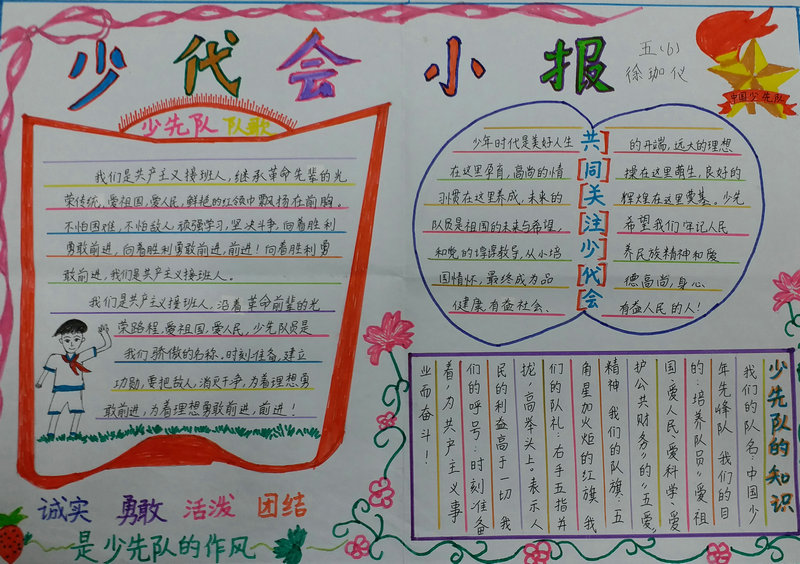 少代会小报
五(6)
徐珈仪
中国少先队
少先队队歌
我们是共产主义接班人,继承革命先辈的光
荣传统,爱祖国,爱人民,鲜艳的红领巾飘扬在前胸。
不怕困难,不怕敌人,顽强学习,坚决斗争,向着胜利
勇敢前进,向着胜利勇敢前进,前进!向着胜利勇
敢前进,我们是共产主义接班人。
我们是共产主义接班人,沿着革命前辈的光
荣路程,爱祖国,爱人民,少先队员是
我们骄傲的名称。时刻准备,建立
功勋,要把敌人消灭干净,为着理想勇
敢前进,为着理想勇敢前进,前进!
诚实 勇敢 活泼 团结
是少先队的作风
共同关注少代会
少年时代是美好人生的开端,远大的理想
在这里孕育,高尚的情操在这里萌生,良好的
习惯在这里养成,未来的辉煌在这里奠基。少先
队员是祖国的未来与希望,希望我们牢记人民
和党的谆谆教导,从小培养民族精神和爱
国情怀,最终成为品德高尚,身心
健康,有益社会、有益人民的人!
少先队的知识
我们的队名:中国少
年先锋队 我们的目
的:培养队员“爱祖
国、爱人民、爱科学、爱
护公共财务”的“五爱
精神 我们的队旗:五
角星加火炬的红旗 我
们的队礼:右手五指并
拢,高举头上。表示人
民的利益高于一切 我
们的呼号:时刻准备
着,为共产主义事
业而奋斗!